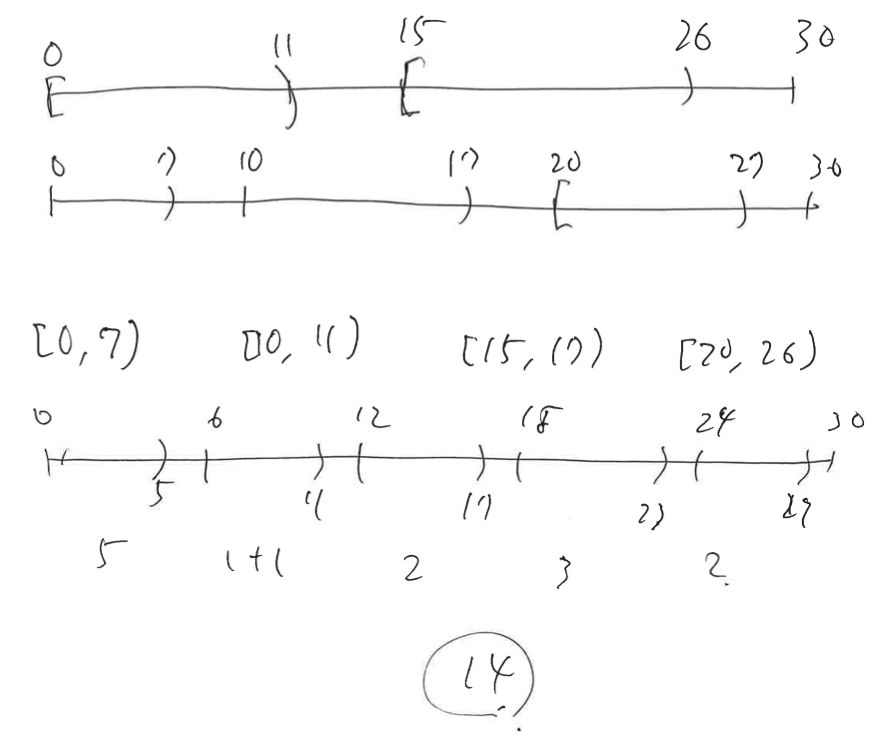 0 11 15 26 30
0 7 10 17 20 27 30
[0, 7) [10, 11) [15, 17) [20, 26)
0 6 12 18 24 30
5 11 17 23 29
5 1+1 2 3 2
14